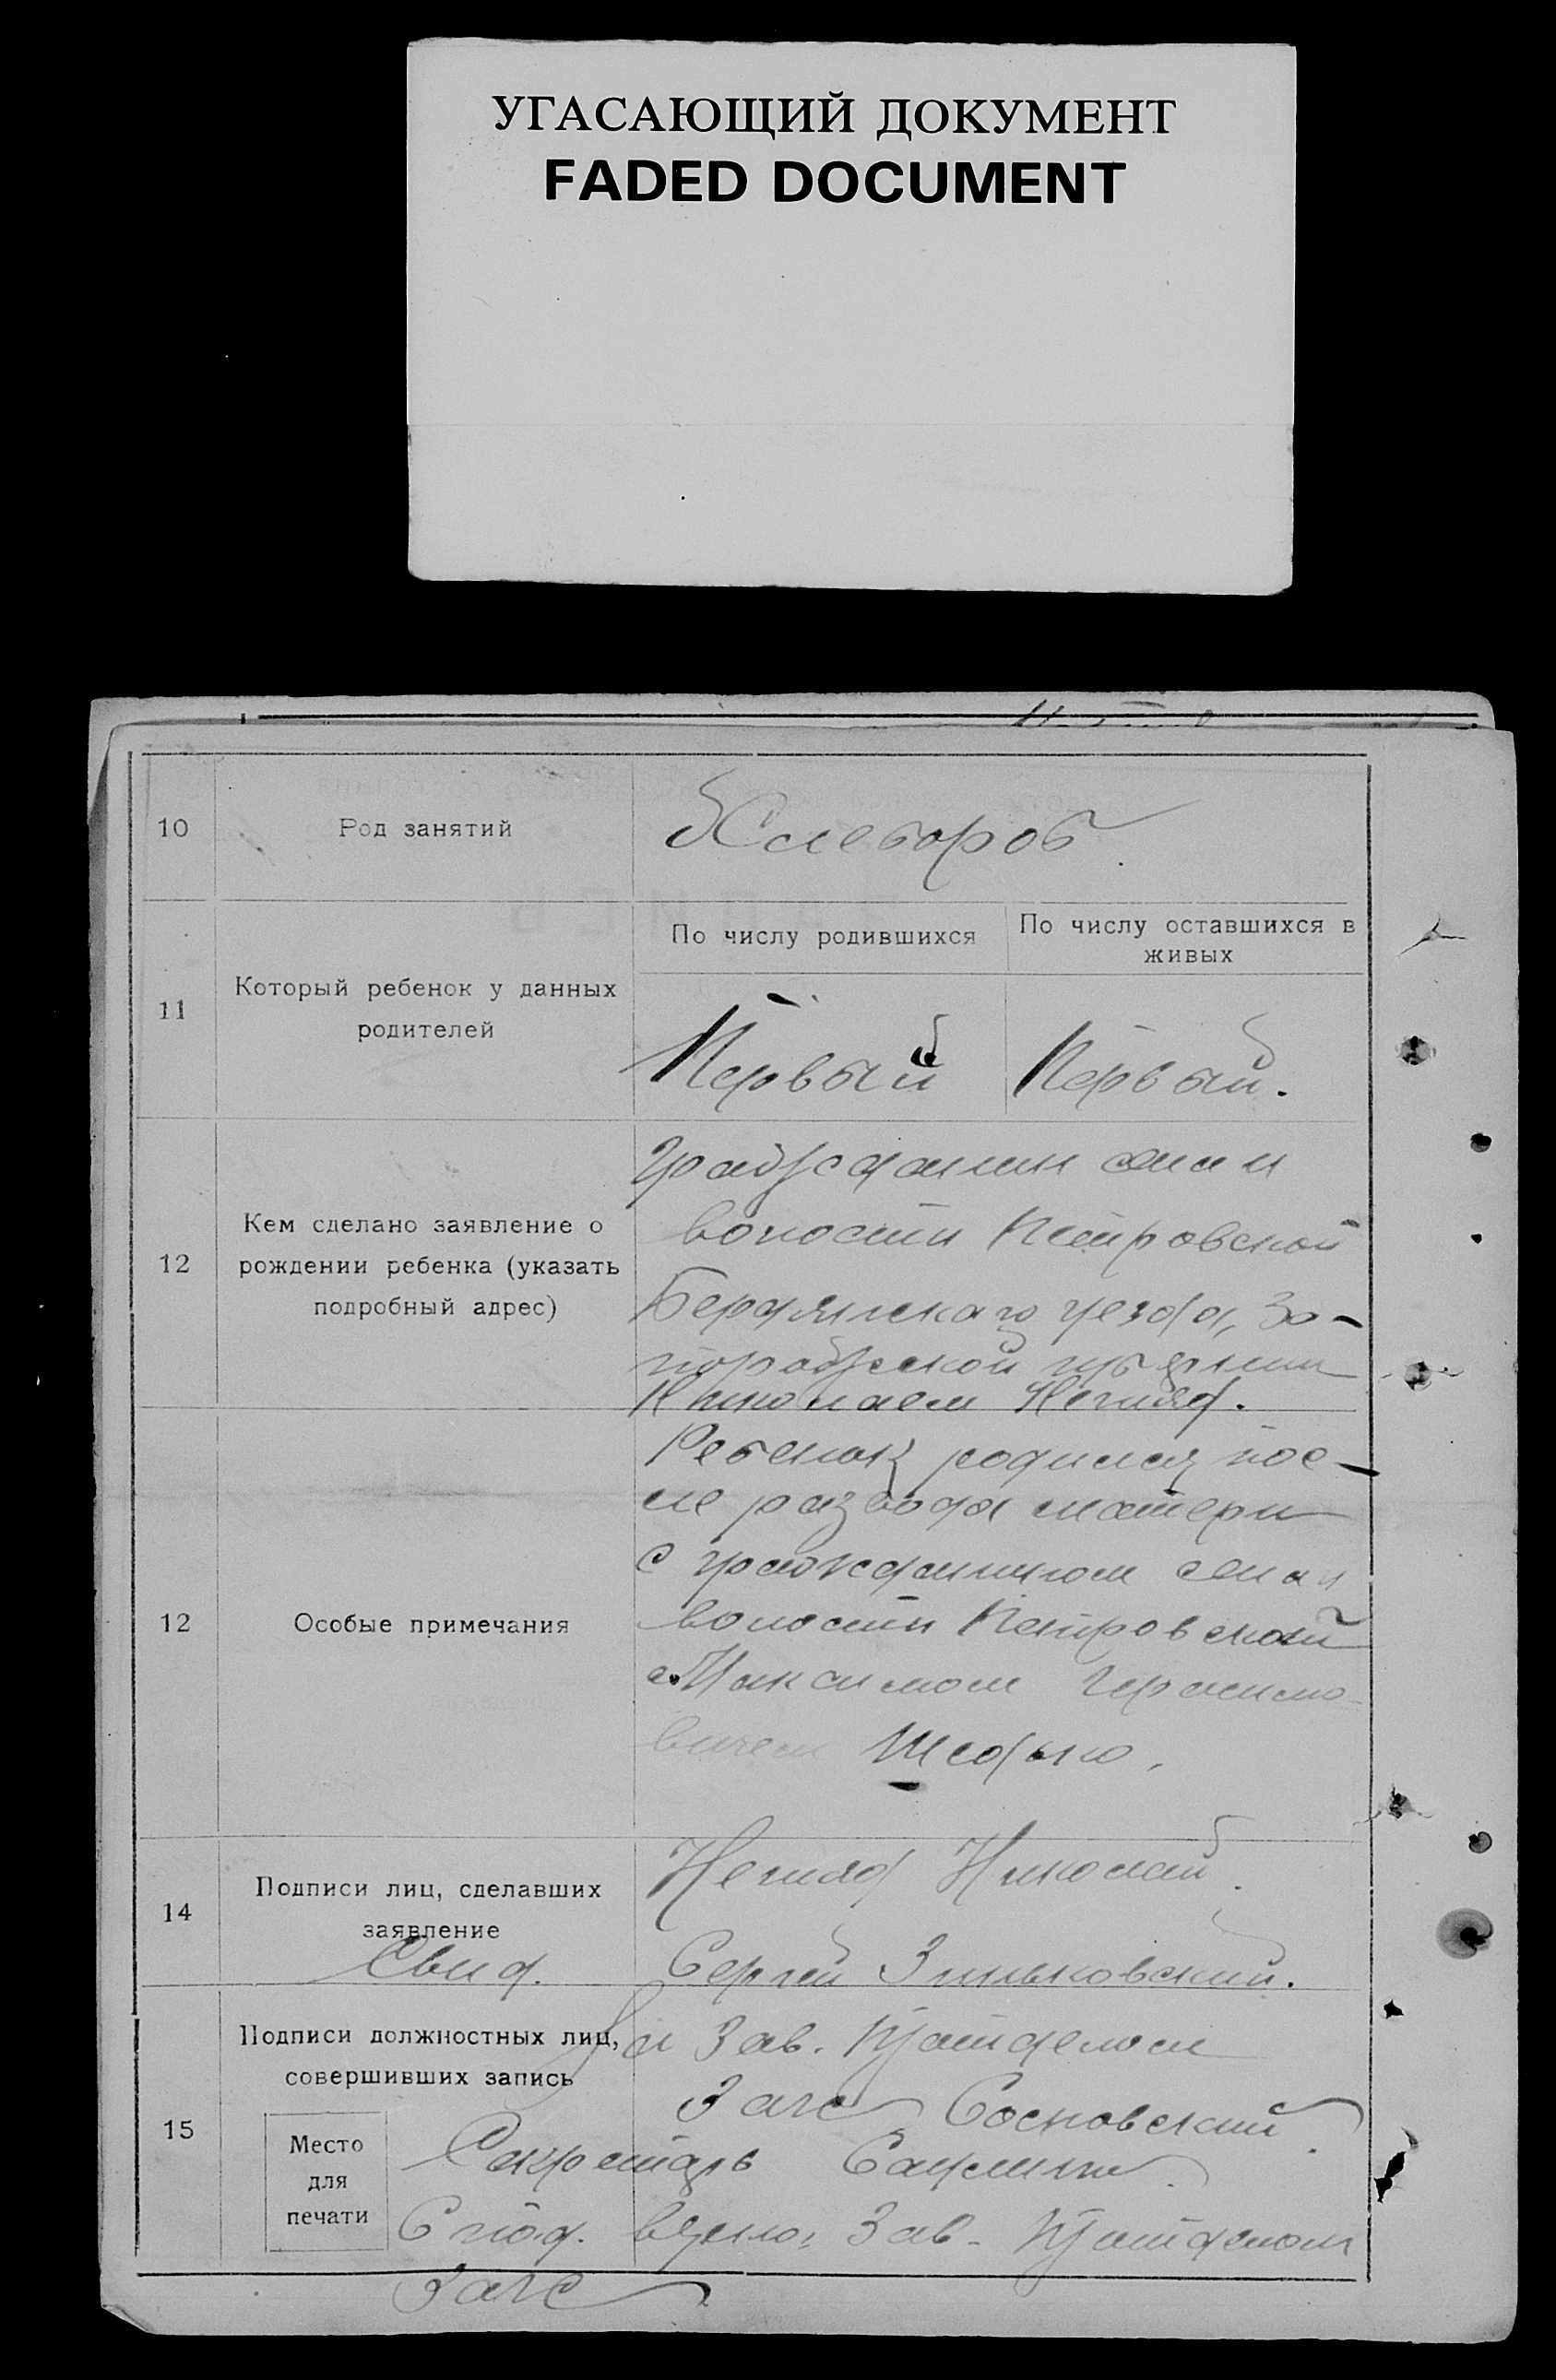 УГАСАЮЩИЙ ДОКУМЕНТ
FADED DOCUMENT
10
Род занятий
Хлебороб
11
Который ребенок у данных
родителей
По числу родившихся
По числу оставшихся в
живых
Первый
Первый.
12
Кем сделано заявление о
рождении ребенка (указать
подробный адрес)
Гражданин села и
волости Петровской
Бердянскаго уезда, За-
порожской губернии
Николаем Негляд.
12
Особые примечания
Ребенок родился пос-
ле развода матери
с гражданином села и
волости Петровской
Максимом Герасимо
вичем Шедько.
14
Подписи лиц, сделавших
заявление
Негляд Николай.
Свид.
Сергей Зиньковский.
15
Подписи должностных лиц,
совершивших запись
Зав. П/отделом
Загс Сосновский
Место
для
печати
Секретарь
С под. верно: Зав. П/отделом
Загс